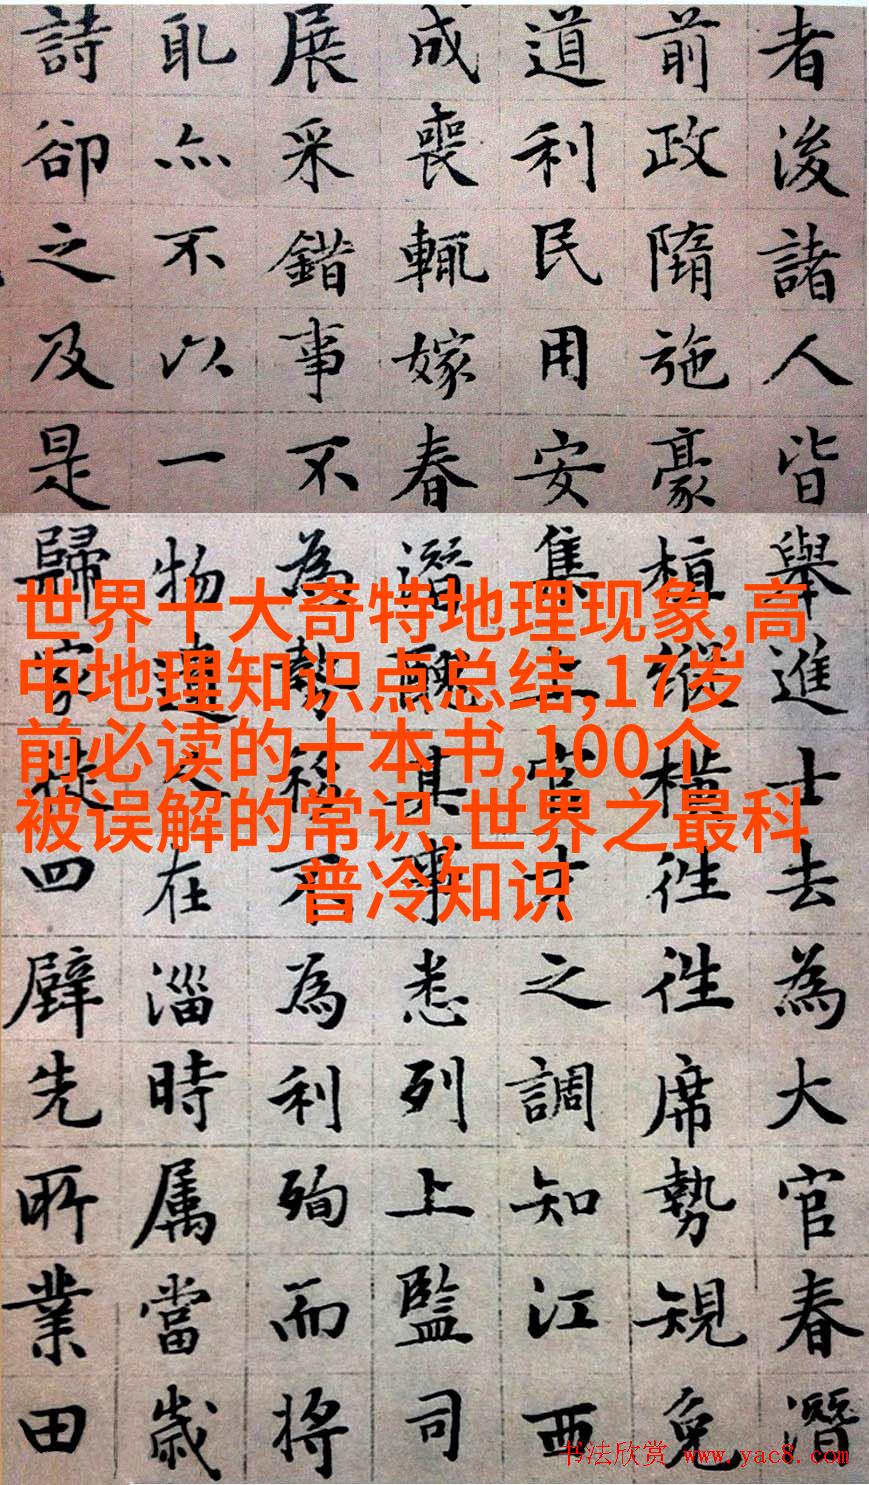 者後諸人皆舉進士去為大官春潛
前政隋施豪植縱橫往往席勢規免
道利民用安集上官才之調知江西
成喪輒嫁春潛聰其事悉列上監司
展采錯事不為勢不為利殉而將
耴亦不以一物連在淄時属當歲
詩卻之及是歸家徒四壁先所業田
世界十大奇特地理现象,高
中地理知识点总结,17岁
前必读的十本书,100个
被误解的常识,世界之最科
普冷知识
书法欣赏 www.yac8.com